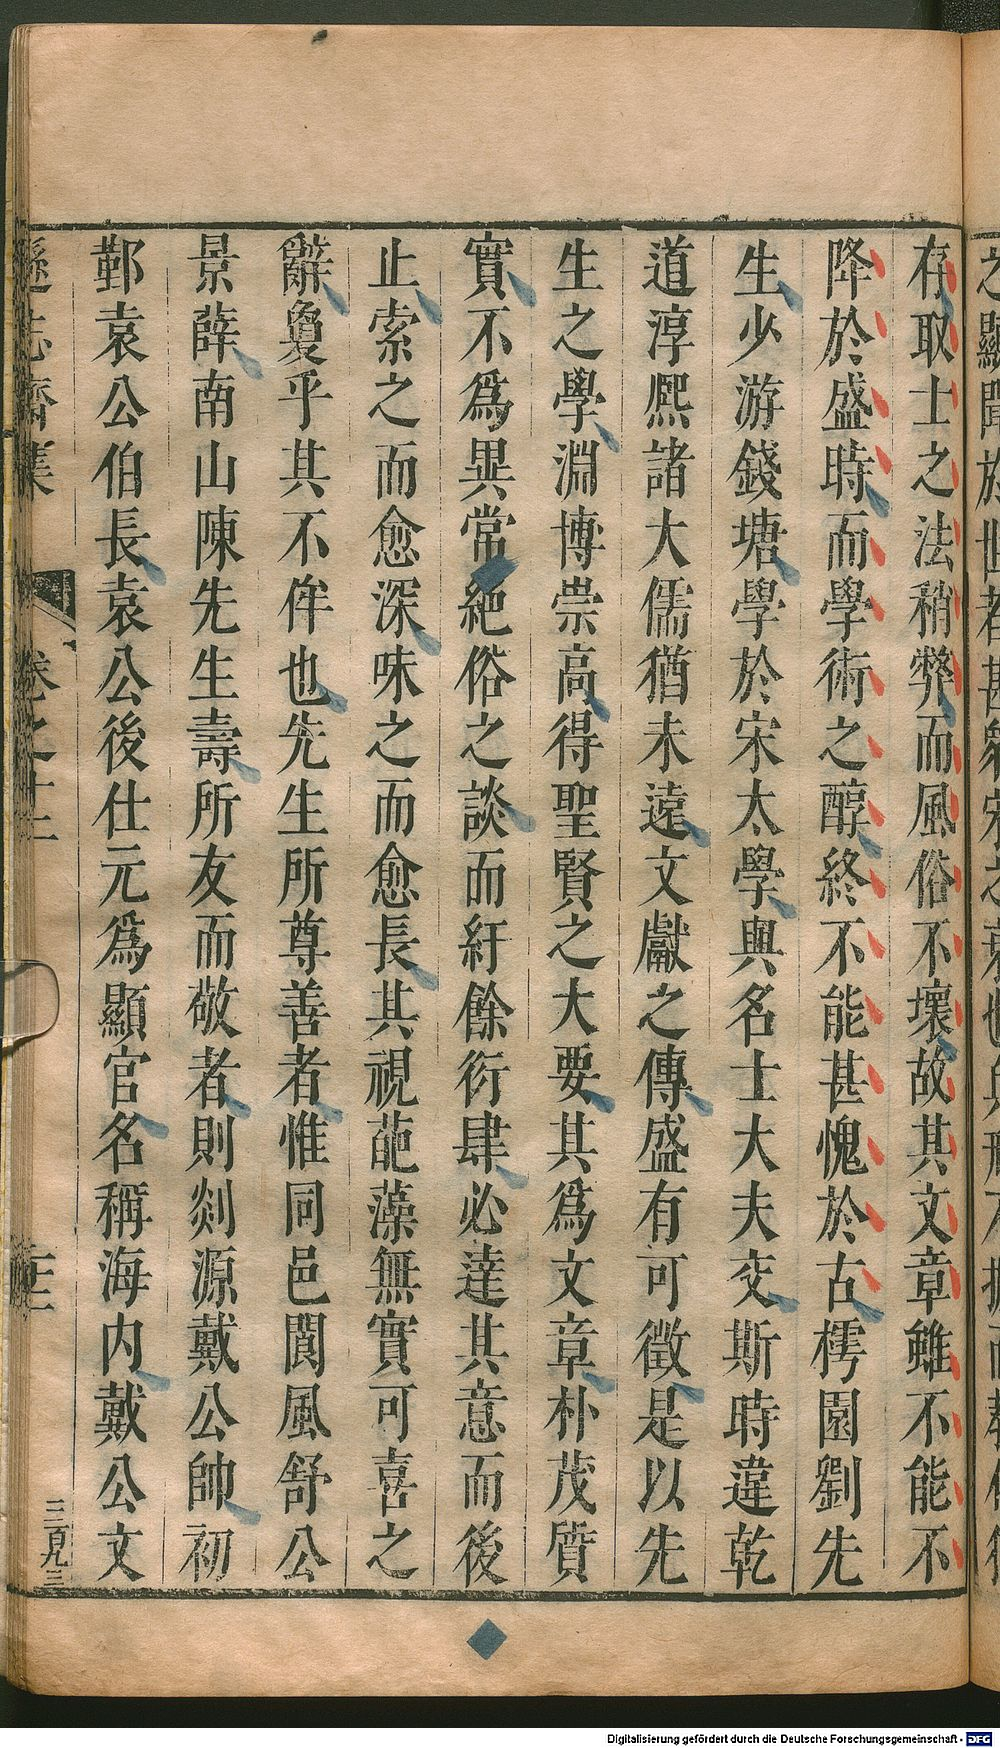 存取士之法稍弊而風俗不壞故其文章雖不能不
降於盛時而學術之醇終不能甚愧於古樗園劉先
生少游錢塘學於宋太學與名士大夫交斯時違乾
道淳熙諸大儒猶未遠文獻之傳盛有可徵是以先
生之學淵博崇高得聖賢之大要其為文章朴茂質
實不為異常絶俗之談而紆餘衍肆必達其意而後
止索之而愈深味之而愈長其視葩藻無實可喜之
辭敻乎其不侔也先生所尊善者惟同邑閬風舒公
景薛南山陳先生壽所友而敬者則剡源戴公帥初
鄞袁公伯長袁公後仕元為顯官名稱海内戴公文
遜志齋集
卷之十二
三百九三
Digitalisierung gefördert durch die Deutsche Forschungsgemeinschaft - DFG